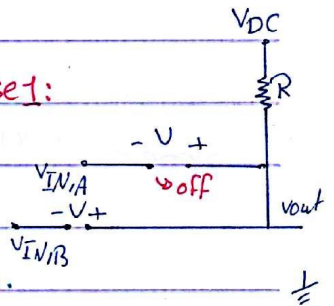 VDC
se1:
R
- V +
VIN,A
↳off
Vout
- V +
VIN,B